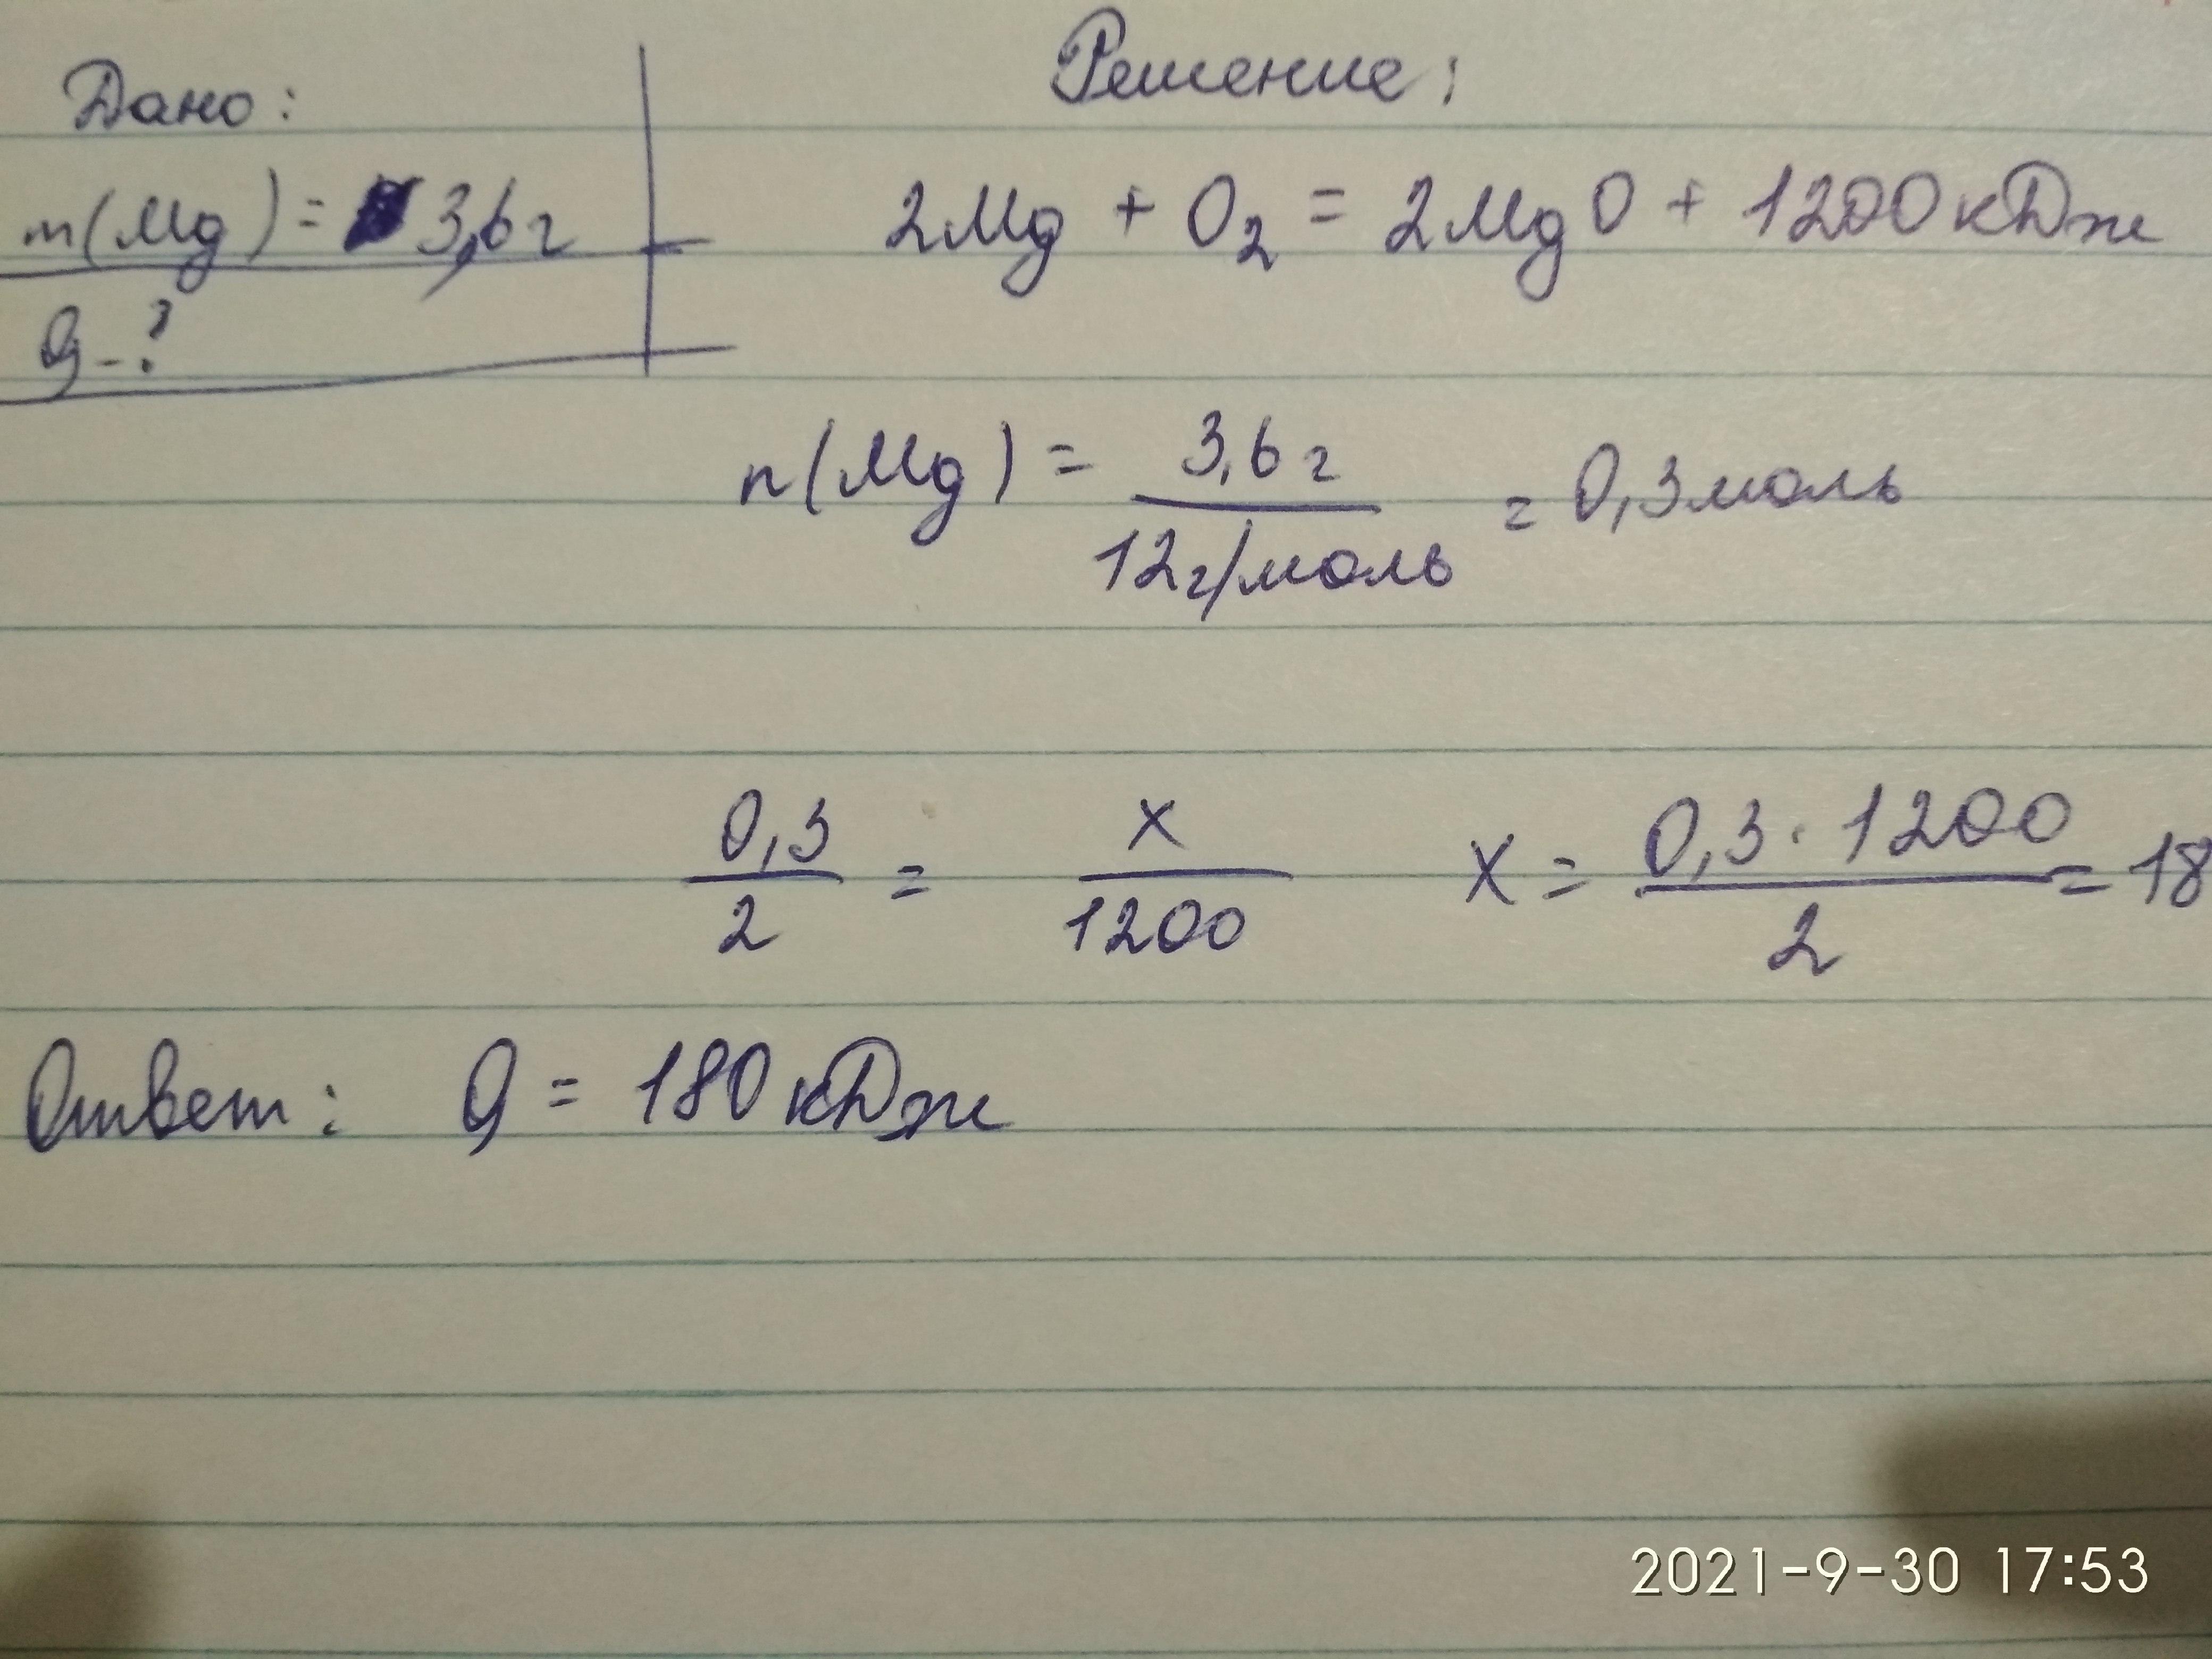 Дано:
Решение:
m(Mg) = 3,6 г
2Mg + O₂ = 2MgO + 1200 кДж
Q - ?
n(Mg) = 3,6 г / 12 г/моль = 0,3 моль
0,3 / 2 = x / 1200 x = 0,3 · 1200 / 2 = 18
Ответ: Q = 180 кДж
2021-9-30 17:53